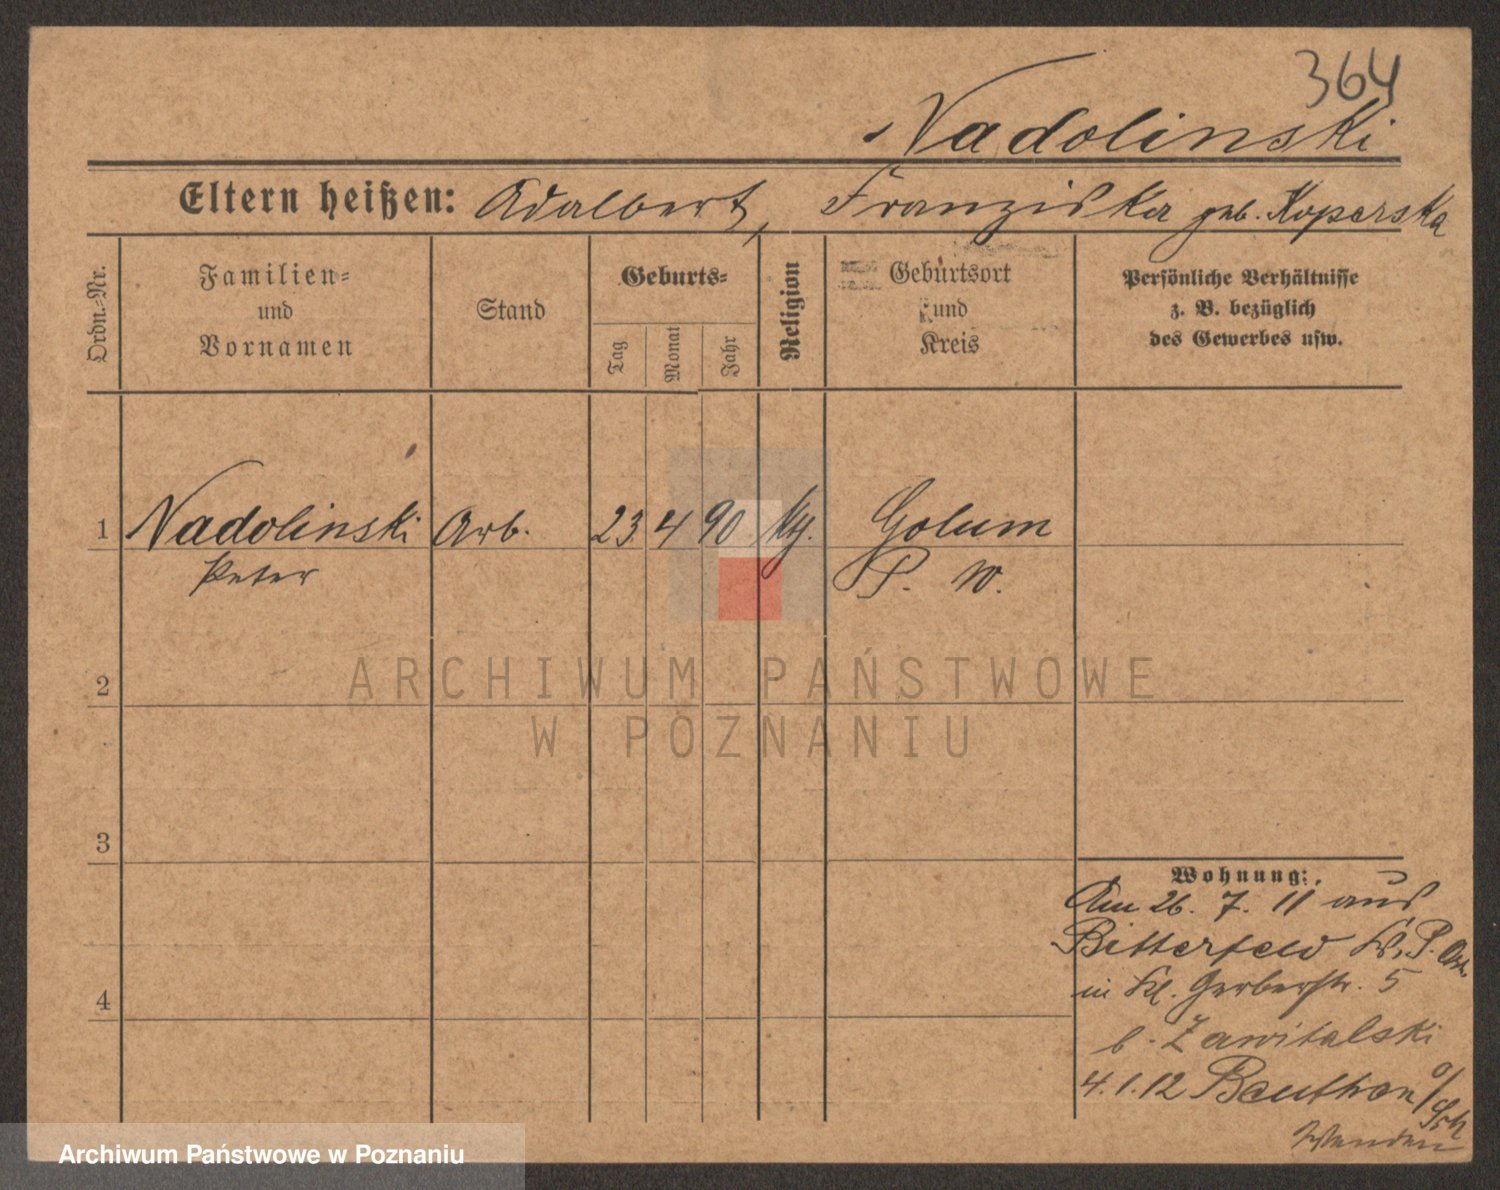 364
Nadolinski
Eltern heißen: Adalbert, Franziska geb. Koparska
Ordn.-Nr.
Familien-
und
Vornamen
Stand
Geburts-
Tag
Monat
Jahr
Religion
Geburtsort
und
Kreis
Persönliche Verhältnisse
z. B. bezüglich
des Gewerbes usw.
1 Nadolinski Arb. 23 4 90 Golum
Peter P. W.
2
3
4
Wohnung:
Am 26. 7. 11 aus
Bitterfeld
in Kl. Gerberstr. 5
b. Zawitalski
4.1.12 Beuthen o/
Wenden
ARCHIWUM PAŃSTWOWE
W POZNANIU
Archiwum Państwowe w Poznaniu